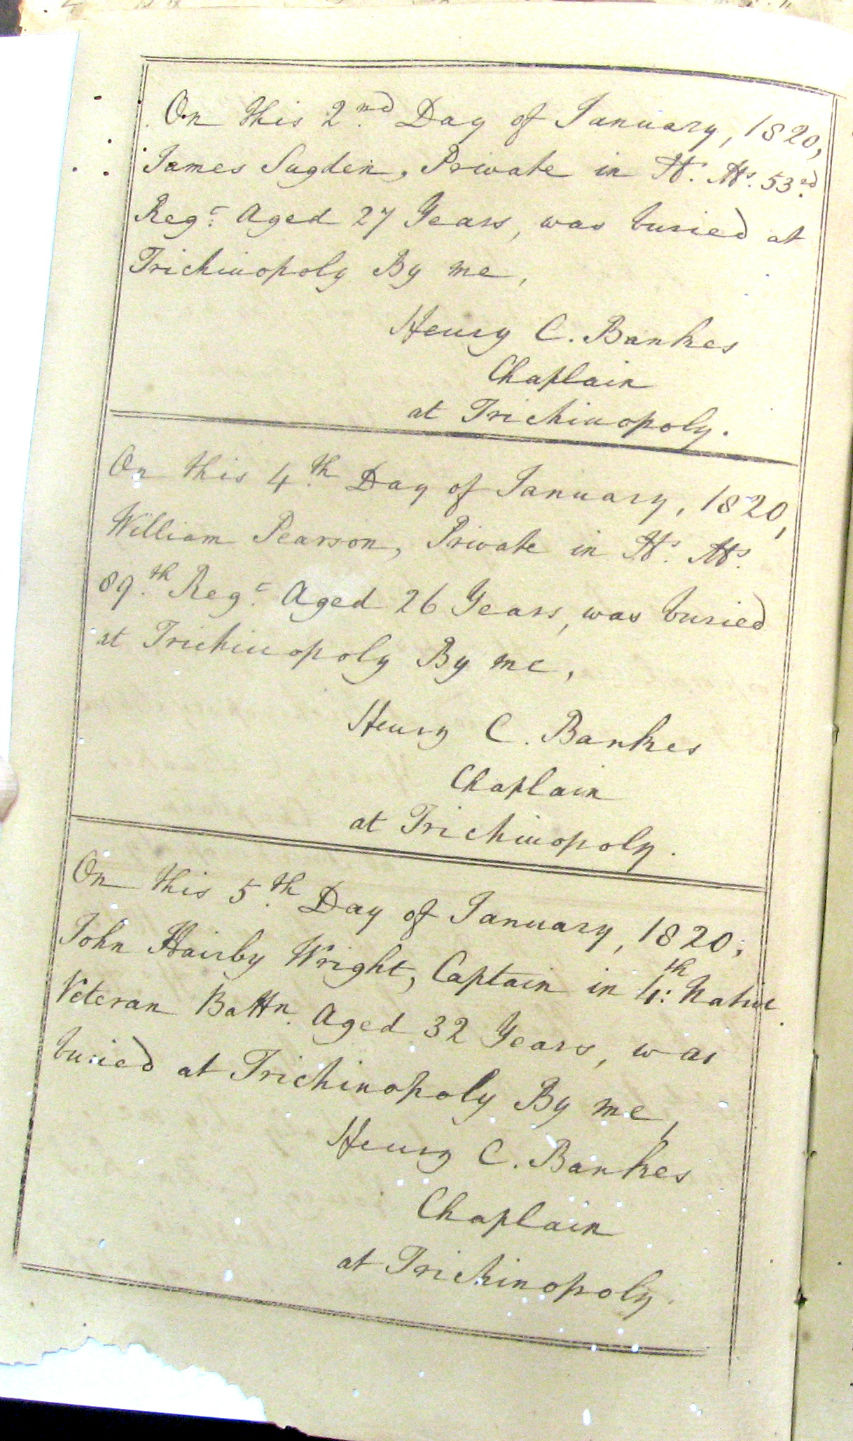 On this 2nd Day of January, 1820,
James Sugden, Private in H. Ms. 53rd
Regt. Aged 27 Years, was buried at
Trichinopoly By me,
Henry C. Bankes
Chaplain
at Trichinopoly.
On this 4th Day of January, 1820,
William Pearson, Private in Hs. Ms.
89th Regt. Aged 26 Years, was buried
at Trichinopoly By me,
Henry C. Bankes
Chaplain
at Trichinopoly.
On this 5th Day of January, 1820,
John Hairby Wright, Captain in 4th Native
Veteran Battn. Aged 32 Years, was
buried at Trichinopoly By me,
Henry C. Bankes
Chaplain
at Trichinopoly.